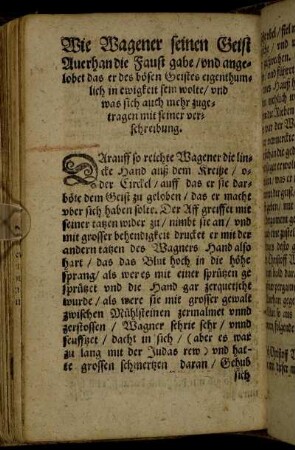 Wie Wagener seinen Geist
Auerhan die Faust gabe / vnd ange-
lobet das er des bösen Geistes eigenthum-
lich in ewigkeit sein wolte / vnd
was sich auch mehr zuge-
tragen mit seiner ver-
schreibung.
DArauff so reichte Wagener die lin-
cke Hand auß dem Kreiße / o-
der Circkel / auff das er sie dar-
böte dem Geist zu geloben / das er macht
vber sich haben solte. Der Aff greiffet mit
seiner tatzen wider zu / nimbt sie an / vnd
mit grosser behendigkeit drucket er mit der
andern tatzen des Wagners Hand also
hart / das das Blut hoch in die höhe
sprang / als wer es mit einer sprützen ge
sprützet vnd die Hand gar zerquetscht
wurde / als were sie mit grosser gewalt
zwischen Mühlsteinen zermalmet vnnd
zerstossen / Wagner schrie sehr / vnnd
seuffitzet / dacht in sich / (aber es war
zu lang mit der Judas rew) vnd hat-
te grossen schmertzen daran / Gehub
sich